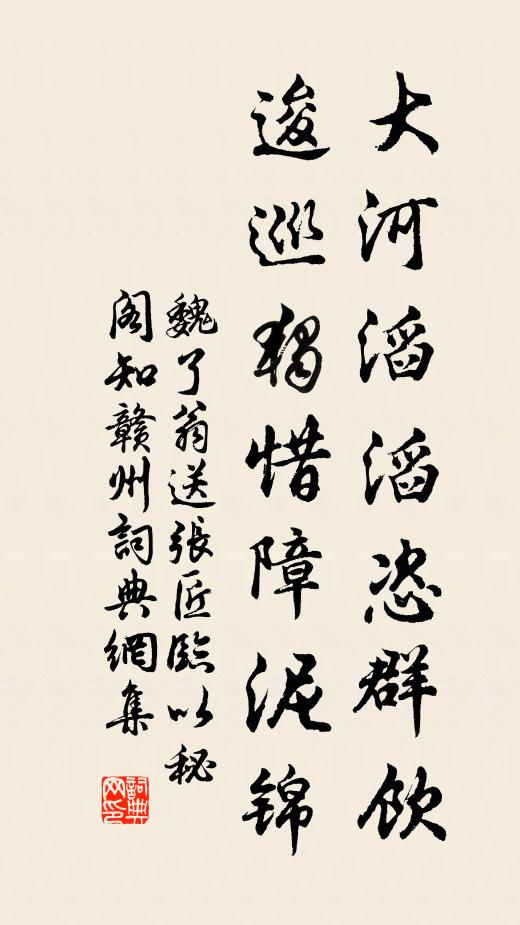 大河滔滔恣群飲
逡巡獨惜障泥锦
魏了翁送張匠臨以秘
閣知贛州詞典網集
詞典网印